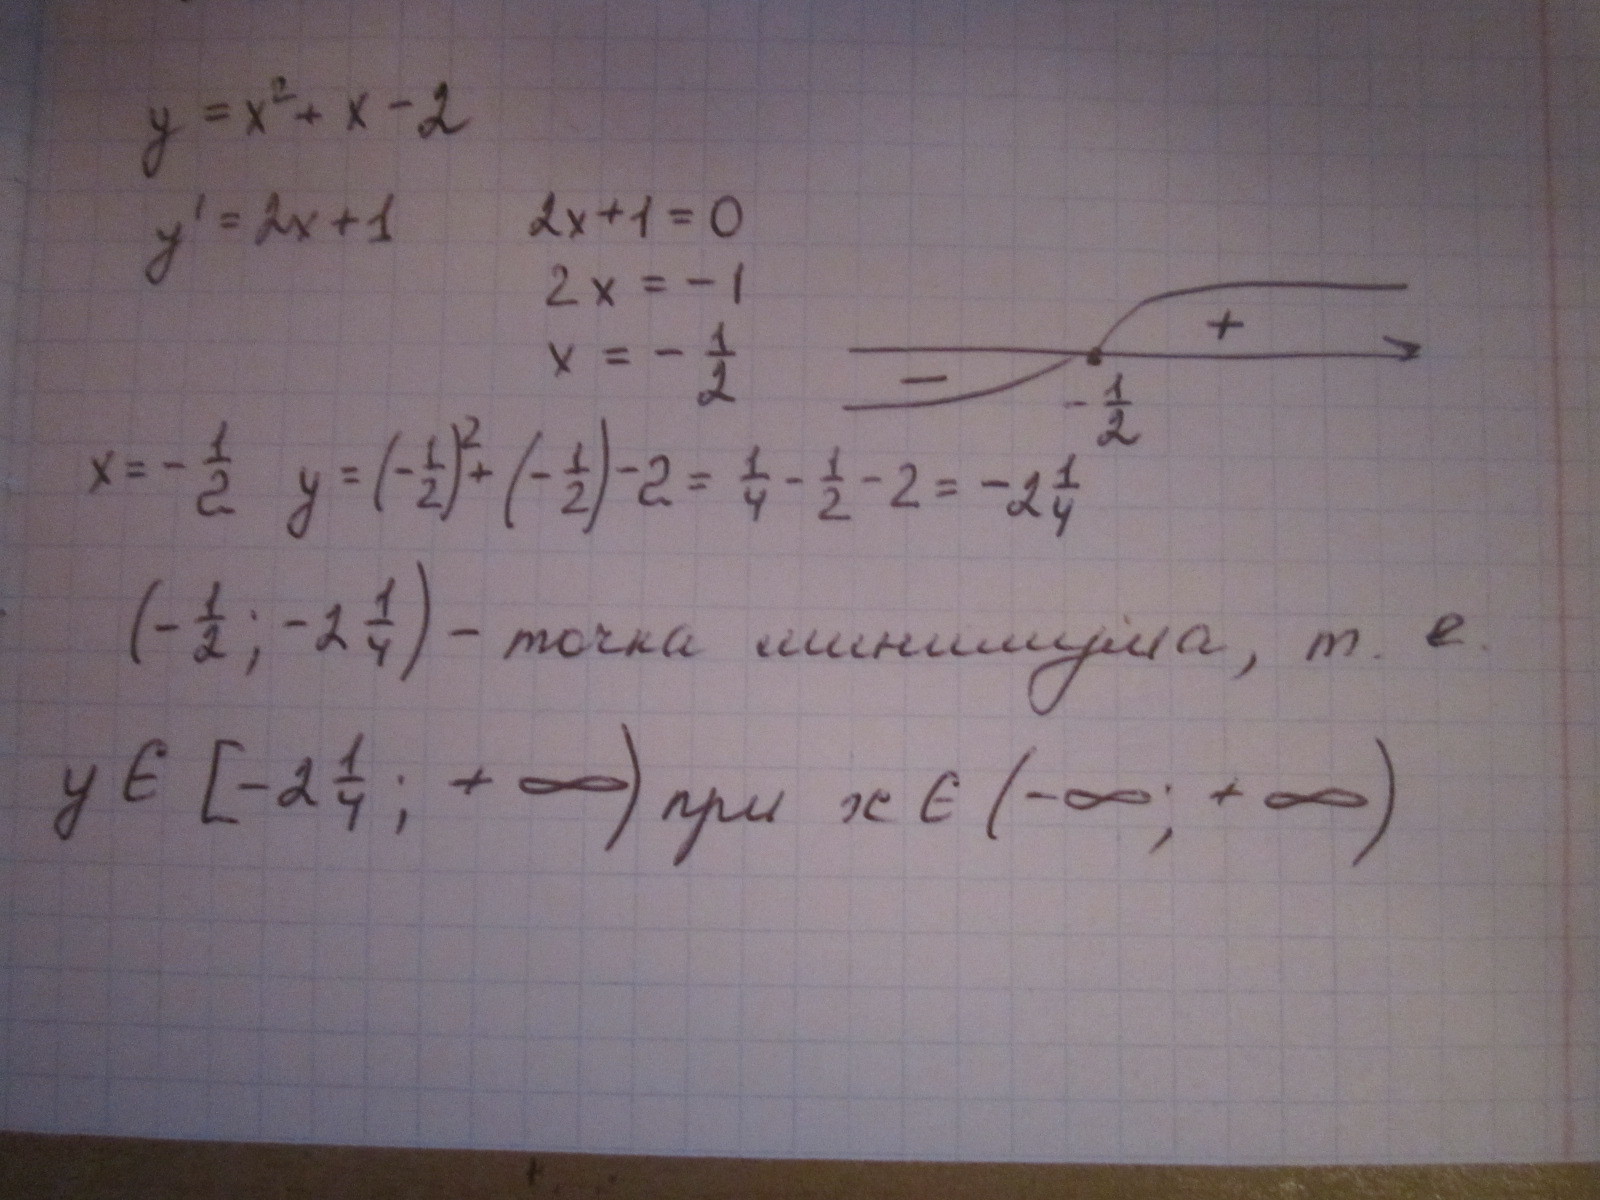 y = x² + x - 2
y' = 2x + 1    2x + 1 = 0
2x = -1
x = - 1/2
- + - 1/2
x = - 1/2  y = (- 1/2)² + (- 1/2) - 2 = 1/4 - 1/2 - 2 = -2 1/4
(- 1/2; -2 1/4) - точка минимума, т. е.
y ∈ [-2 1/4; + ∞) при x ∈ (-∞; + ∞)